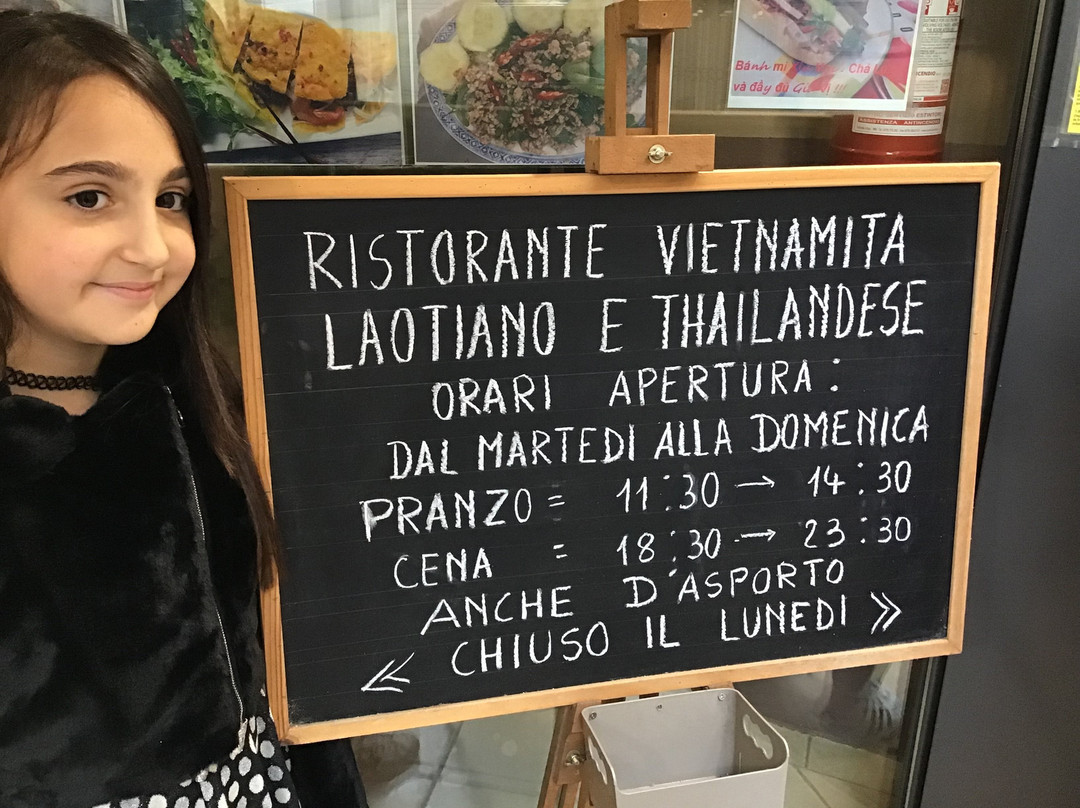 Bánh mì Chả
và đầy đủ
RISTORANTE VIETNAMITA
LAOTIANO E THAILANDESE
ORARI APERTURA:
DAL MARTEDI ALLA DOMENICA
PRANZO = 11:30 → 14:30
CENA = 18:30 → 23:30
ANCHE D'ASPORTO
CHIUSO IL LUNEDI